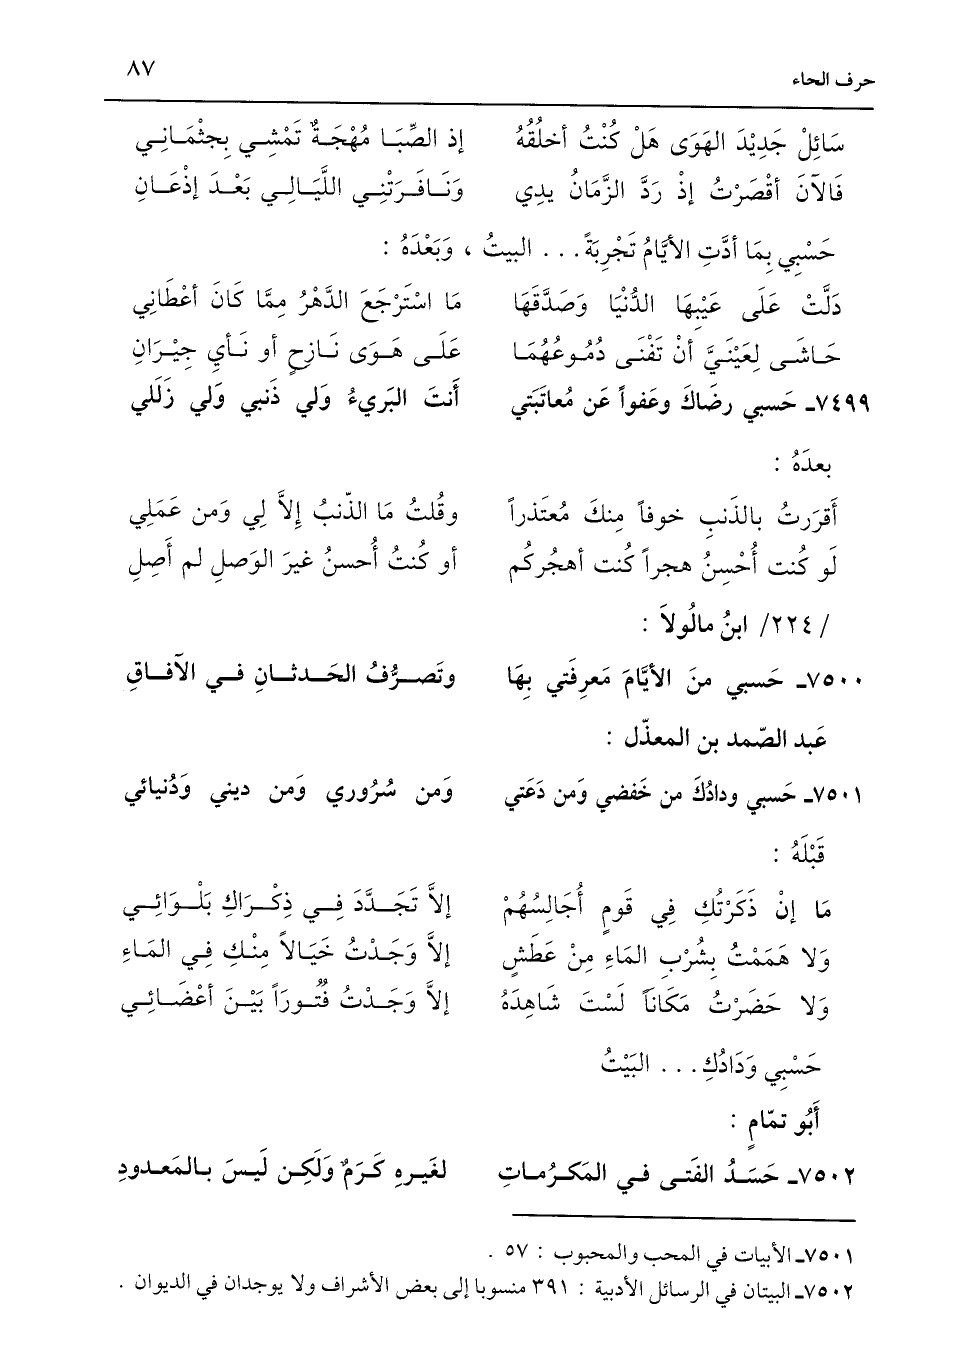 حرف الحاء ٨٧
سَائِلْ جَدِيْدَ الهَوَى هَلْ كُنْتُ أخلُقُهُ إذ الصِّبَا مُهْجَةٌ تَمْشِي بِجثْمَانِي
فَالآنَ أقْصَرْتُ إذْ رَدَّ الزَّمَانُ يدِي وَنَافَرَتْنِي اللَّيَالِي بَعْدَ إذْعَانِ
حَسْبِي بِمَا أدَّتِ الأيَّامُ تَجْرِبَةً . . . البيتُ ، وَبَعْدَهُ :
دَلَّتْ عَلَى عَيْبِهَا الدُّنْيَا وَصَدَّقَهَا مَا اسْتَرْجَعَ الدَّهْرُ مِمَّا كَانَ أعْطَانِي
حَاشَى لِعَيْنَيَّ أنْ تَفْنَى دُمُوعُهُمَا عَلَى هَوَى نَازِحٍ أو نَأيِ جِيْرَانِ
٧٤٩٩ـ حَسبِي رضَاكَ وعَفواً عَن مُعاتبَتي أَنتَ البَريءُ ولي ذَنبي وَلي زَلَلي
بعدَهُ :
أَقرَرتُ بالذَنبِ خوفاً مِنكَ مُعتَذراً وقُلتُ مَا الذّنبُ إلاَّ لِي وَمن عَمَلِي
لَو كُنت أُحْسِنُ هجراً كُنت أهجُركُم أو كُنتُ أُحسنُ غيرَ الوَصلِ لم أَصِلِ
/ ٢٢٤/ ابنُ مالُولاَ :
٧٥٠٠ـ حَسبي منَ الأيَّامَ مَعرِفَتي بِهَا وتَصرُّفُ الحَدثانِ في الآفاقِ
عَبد الصّمد بن المعذّل :
٧٥٠١ـ حَسبي ودادُكَ من خَفضي وَمن دَعَتي وَمن سُرُوري وَمن ديني وَدُنيائي
قَبْلَهُ :
مَا إنْ ذَكَرْتُكِ فِي قَومٍ أُجَالِسُهُمْ إلاَّ تَجَدَّدَ فِي ذِكْرَاكِ بَلْوَائِي
وَلا هَمَمْتُ بِشُربِ المَاءِ مِنْ عَطَشٍ إلاَّ وَجَدْتُ خَيَالاً مِنْكِ فِي المَاءِ
وَلا حَضَرْتُ مَكَاناً لَسْتَ شَاهِدَهُ إلاَّ وَجَدْتُ فُتُوراً بَيْنَ أعْضَائِي
حَسْبِي وَدَادُكِ . . . البَيْتُ
أَبُو تمّامٍ :
٧٥٠٢ـ حَسَدُ الفَتى في المَكرُماتِ لغَيرهِ كَرَمٌ وَلَكِن لَيسَ بالمَعدودِ
٧٥٠١ـ الأبيات في المحب والمحبوب : ٥٧ .
٧٥٠٢ـ البيتان في الرسائل الأدبية : ٣٩١ منسوبا إلى بعض الأشراف ولا يوجدان في الديوان .